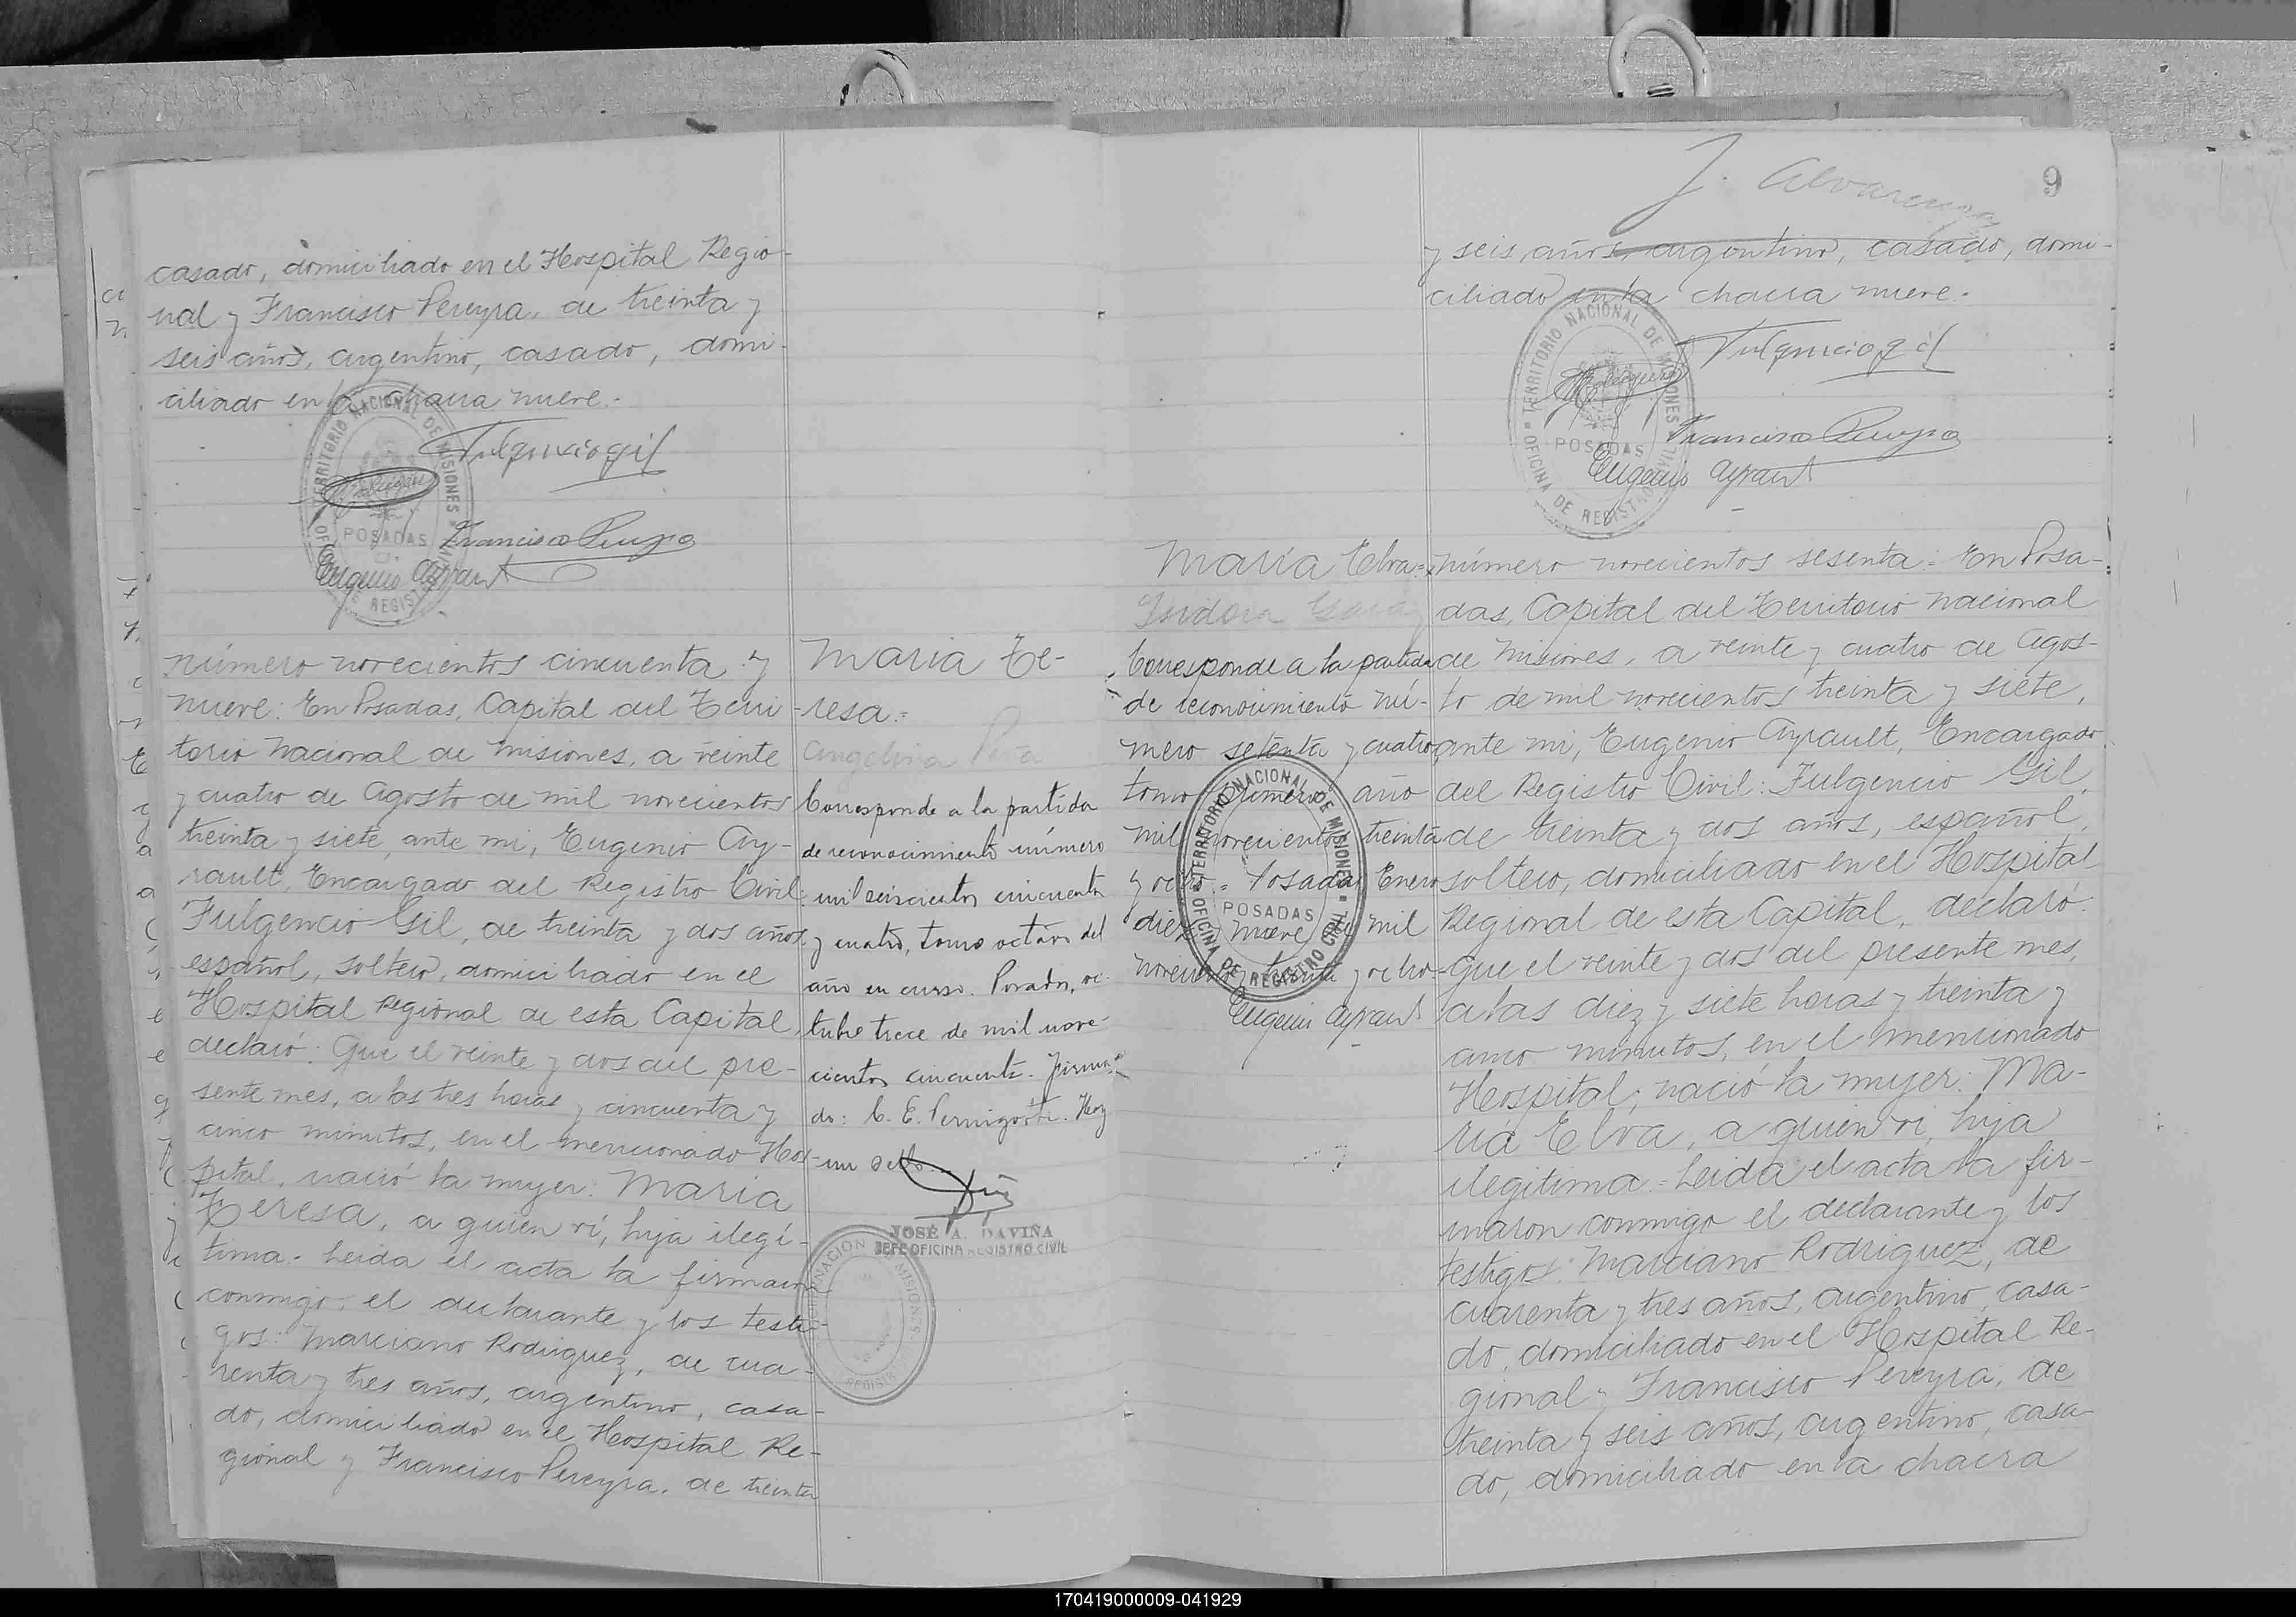 casado, domiciliado en el Hospital Regio-
nal y Francisco Pereyra, de treinta y
seis años, argentino, casado, domi-
ciliado en la chacra nueve.-
TERRITORIO NACIONAL DE MISIONES
POSADAS
Fulgencio gil
Francisco Pereyra
Eugenio Ayrault
número novecientos cincuenta y
nueve: En Posadas, Capital del Terri-
torio Nacional de Misiones, a veinte
y cuatro de Agosto de mil novecientos
treinta y siete, ante mi, Eugenio Ay-
rault, Encargado del Registro Civil:
Fulgencio Gil, de treinta y dos años,
español, soltero, domiciliado en el
Hospital Regional de esta Capital,
declaró: Que el veinte y dos del pre-
sente mes, a las tres horas y cincuenta y
cinco minutos, en el mencionado Hos-
pital, nació la mujer: Maria
Teresa, a quien ví, hija ilegí-
tima. Leida el acta la firmaron
conmigo, el declarante y los testi-
gos: Marciano Rodriguez, de cua-
renta y tres años, argentino, casa-
do, domiciliado en el Hospital Re-
gional y Francisco Pereyra, de treinta
Maria Te-
resa.=
Angelina
Corresponde a la partida
de reconocimiento número
mil seiscientos cincuenta
y cuatro, tomo octavo del
año en curso. Posadas, oc-
tubre trece de mil nove-
cientos cincuenta. Firma-
do: C. E. Pernigotti. Hay
un sello.
JOSÉ A. DAVIÑA
JEFE OFICINA REGISTRO CIVIL
J. Alvarenga
9
y seis años, argentino, casado, domi-
ciliado en la chacra nueve.-
TERRITORIO NACIONAL DE MISIONES
OFICINA DE REGISTRO CIVIL
POSADAS
Fulgencio gil
Francisco Pereyra
Eugenio Ayrault
Maria Elva=
Isidora
Corresponde a la partida
de reconocimiento nú-
mero setenta y cuatro,
tomo primero año
mil novecientos treinta
y ocho.= Posadas Enero
diez y nueve de mil
novecientos treinta y ocho=
TERRITORIO NACIONAL DE MISIONES
OFICINA DE REGISTRO CIVIL
POSADAS
Eugenio Ayrault
número novecientos sesenta: En Posa-
das, Capital del Territorio Nacional
de Misiones, a veinte y cuatro de Agos-
to de mil novecientos treinta y siete,
ante mi, Eugenio Ayrault, Encargado
del Registro Civil: Fulgencio Gil,
de treinta y dos años, español,
soltero, domiciliado en el Hospital
Regional de esta Capital, declaró:
Que el veinte y dos del presente mes,
a las diez y siete horas y treinta y
cinco minutos, en el mencionado
Hospital, nació la mujer: Ma-
ria Elva, a quien ví, hija
ilegítima.= Leida el acta la fir-
maron conmigo el declarante y los
testigos: Marciano Rodriguez, de
cuarenta y tres años, argentino, casa-
do, domiciliado en el Hospital Re-
gional y Francisco Pereyra, de
treinta y seis años, argentino, casa-
do, domiciliado en la chacra
170419000009-041929